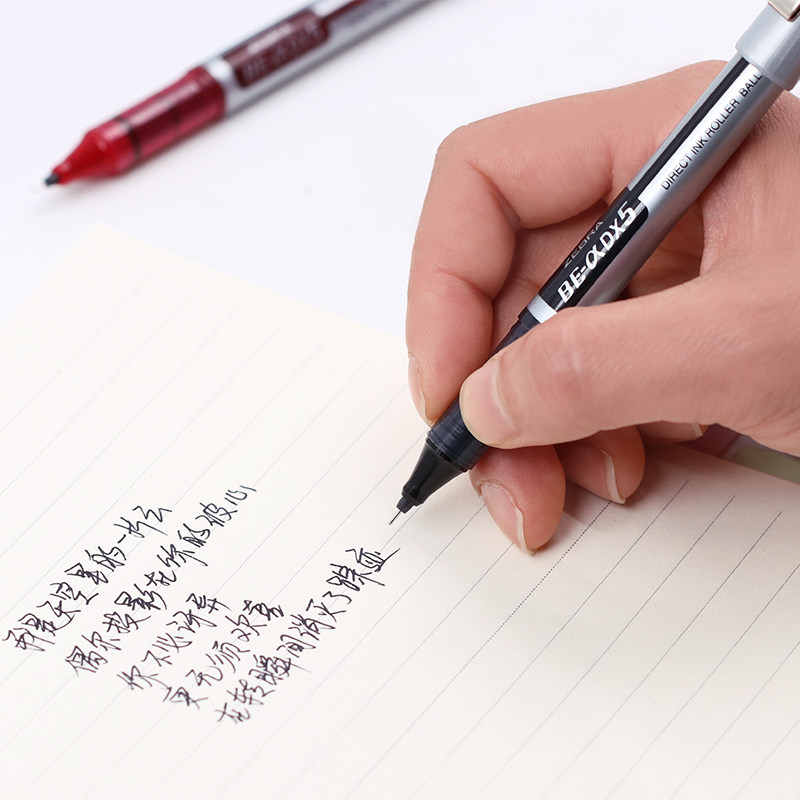 BE-αDX5
ZEBRA
BE-αDX5
DIRECT INK ROLLER BALL
我是天空里的一片云
偶尔投影在你的波心
你不必讶异
更无须欢喜
在转瞬间消灭了踪迹